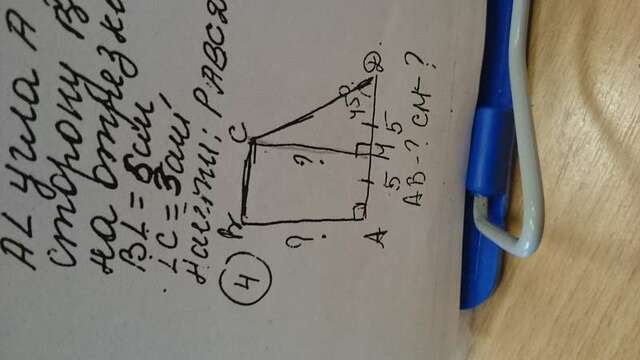 AL угла A
сторону B
на отрезки
BL = 5см
LC = 3см,
Найти: PABCD
4
B C
? ?
45°
D.
A 5 M 5
AB-? CM-?